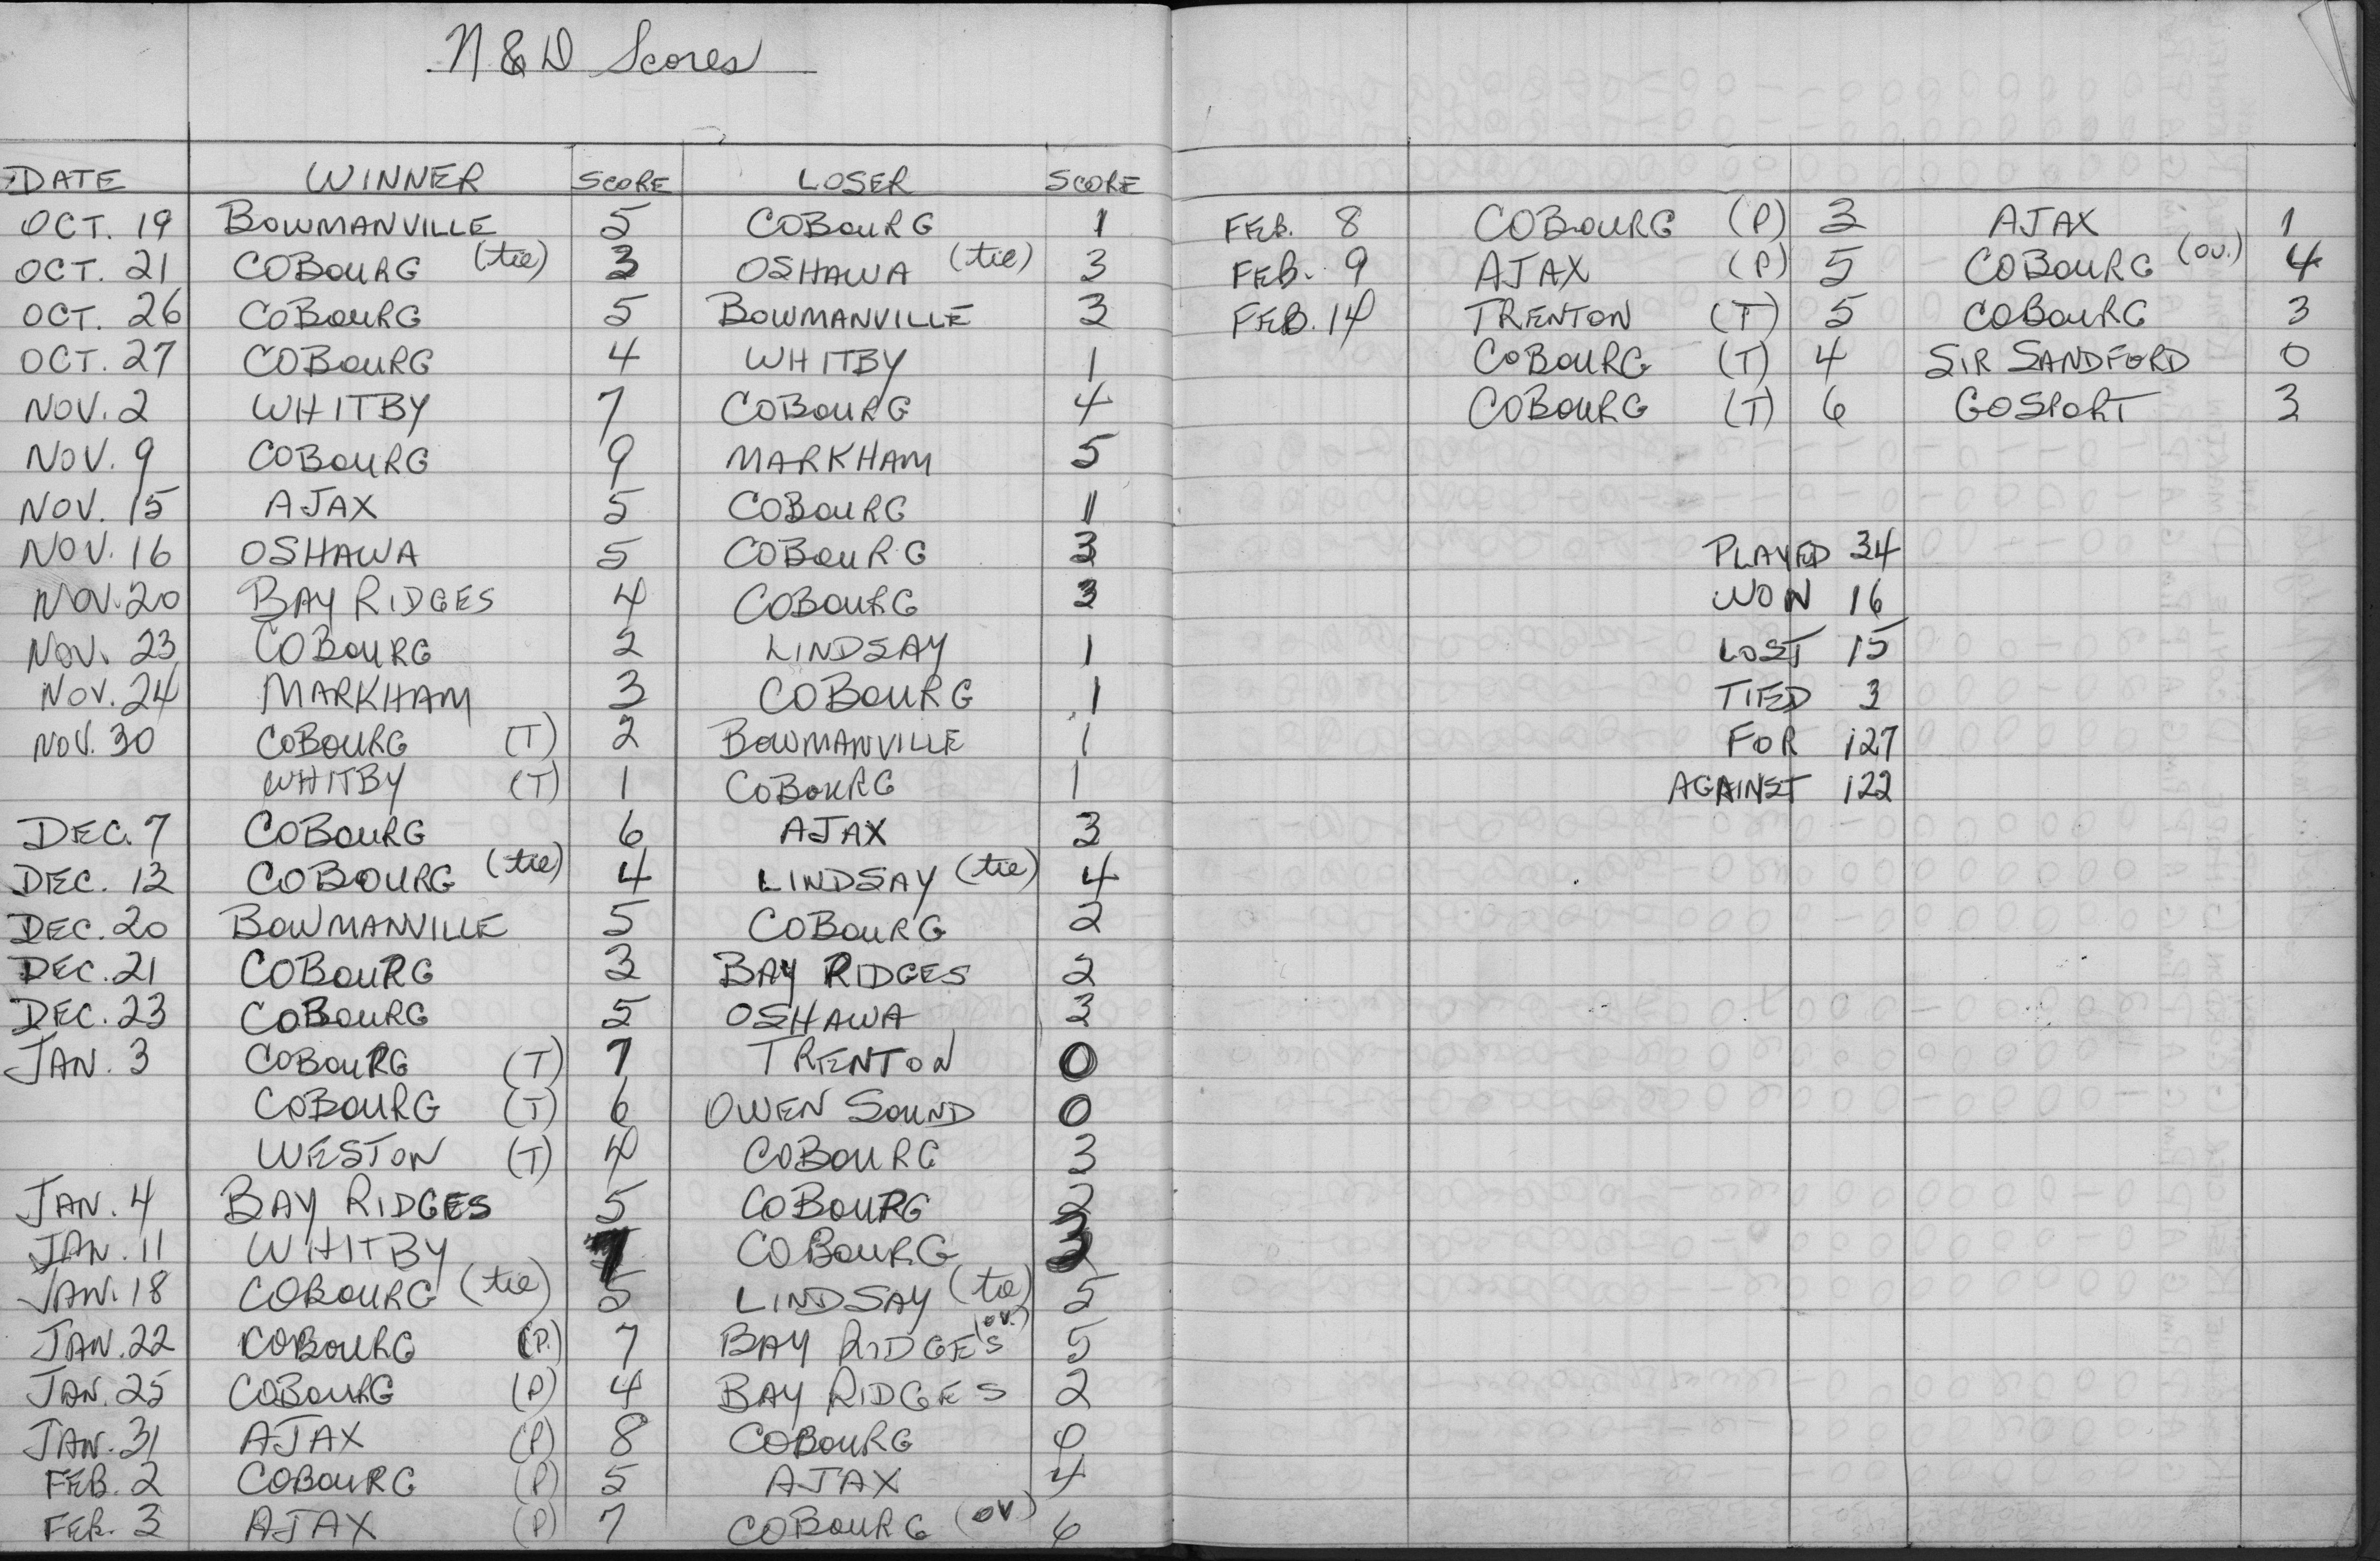 N & D Scores
DATE WINNER SCORE LOSER SCORE
OCT. 19 BOWMANVILLE 5 COBOURG 1
OCT. 21 COBOURG (tie) 3 OSHAWA (tie) 3
OCT. 26 COBOURG 5 BOWMANVILLE 3
OCT. 27 COBOURG 4 WHITBY 1
NOV. 2 WHITBY 7 COBOURG 4
NOV. 9 COBOURG 9 MARKHAM 5
NOV. 15 AJAX 5 COBOURG 1
NOV. 16 OSHAWA 5 COBOURG 3
NOV. 20 BAY RIDGES 4 COBOURG 3
NOV. 23 COBOURG 2 LINDSAY 1
NOV. 24 MARKHAM 3 COBOURG 1
NOV. 30 COBOURG (T) 2 BOWMANVILLE 1
WHITBY (T) 1 COBOURG 1
DEC. 7 COBOURG 6 AJAX 3
DEC. 13 COBOURG (tie) 4 LINDSAY (tie) 4
DEC. 20 BOWMANVILLE 5 COBOURG 2
DEC. 21 COBOURG 3 BAY RIDGES 2
DEC. 23 COBOURG 5 OSHAWA 3
JAN. 3 COBOURG (T) 7 TRENTON 0
COBOURG (T) 6 OWEN SOUND 0
WESTON (T) 4 COBOURG 3
JAN. 4 BAY RIDGES 5 COBOURG 2
JAN. 11 WHITBY 7 COBOURG 3
JAN. 18 COBOURG (tie) 5 LINDSAY (tie) 5
JAN. 22 COBOURG (P.) 7 BAY RIDGES (ov.) 5
JAN. 25 COBOURG (P) 4 BAY RIDGES 2
JAN. 31 AJAX (P) 8 COBOURG 0
FEB. 2 COBOURG (P) 5 AJAX 4
FEB. 3 AJAX (P) 7 COBOURG (OV) 6
FEB. 8 COBOURG (P) 3 AJAX 1
FEB. 9 AJAX (P) 5 COBOURG (OV.) 4
FEB. 14 TRENTON (T) 5 COBOURG 3
COBOURG (T) 4 SIR SANDFORD 0
COBOURG (T) 6 GOSPORT 3
PLAYED 34
WON 16
LOST 15
TIED 3
FOR 127
AGAINST 122